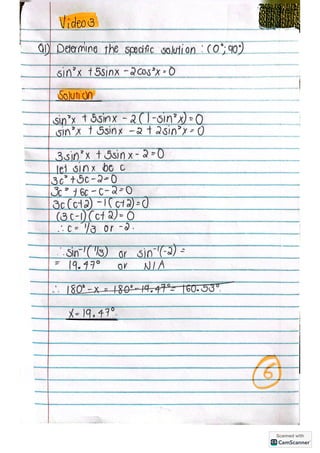 Video 3
Q1) Determine the specific solution : (0°; 90°)
sin²x + 5sinx - 2cos²x = 0
Solution
sin²x + 5sinx - 2(1-sin²x) = 0
sin²x + 5sinx - 2 + 2sin²x = 0
3sin²x + 5sinx - 2 = 0
let sinx be c
3c² + 5c - 2 = 0
3c² + 6c - c - 2 = 0
3c(c+2) - 1(c+2) = 0
(3c-1)(c+2) = 0
∴ c = 1/3 or -2.
∴ sin⁻¹(1/3) or sin⁻¹(-2) =
= 19.47° or N/A
∴ 180° - x = 180° - 19.47° = 160.53°.
x = 19.47°
6
Scanned with
CS CamScanner